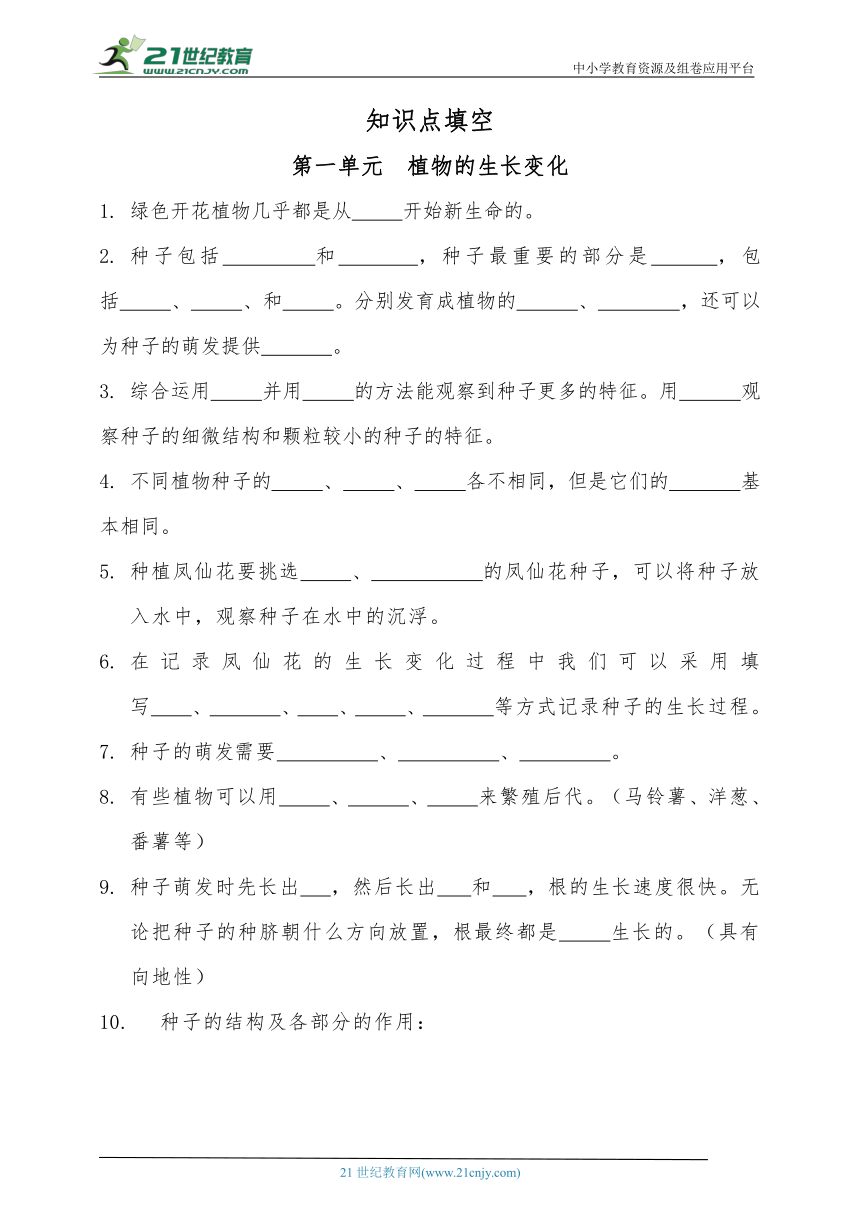 21世纪教育
www.21cnjy.com
中小学教育资源及组卷应用平台
知识点填空
第一单元 植物的生长变化
1. 绿色开花植物几乎都是从_____开始新生命的。
2. 种子包括_________和________,种子最重要的部分是______,包
括_____、_____、和_____。分别发育成植物的______、________,还可以
为种子的萌发提供_______。
3. 综合运用_____并用_____的方法能观察到种子更多的特征。用______观
察种子的细微结构和颗粒较小的种子的特征。
4. 不同植物种子的_____、_____、_____各不相同,但是它们的_______基
本相同。
5. 种植凤仙花要挑选_____、___________的凤仙花种子,可以将种子放
入水中,观察种子在水中的沉浮。
6. 在记录凤仙花的生长变化过程中我们可以采用填
写____、_______、____、_____、_______等方式记录种子的生长过程。
7. 种子的萌发需要__________、__________、_________。
8. 有些植物可以用_____、______、_____来繁殖后代。(马铃薯、洋葱、
番薯等)
9. 种子萌发时先长出___,然后长出___和___,根的生长速度很快。无
论把种子的种脐朝什么方向放置,根最终都是_____生长的。(具有
向地性)
10. 种子的结构及各部分的作用:
21世纪教育网(www.21cnjy.com)